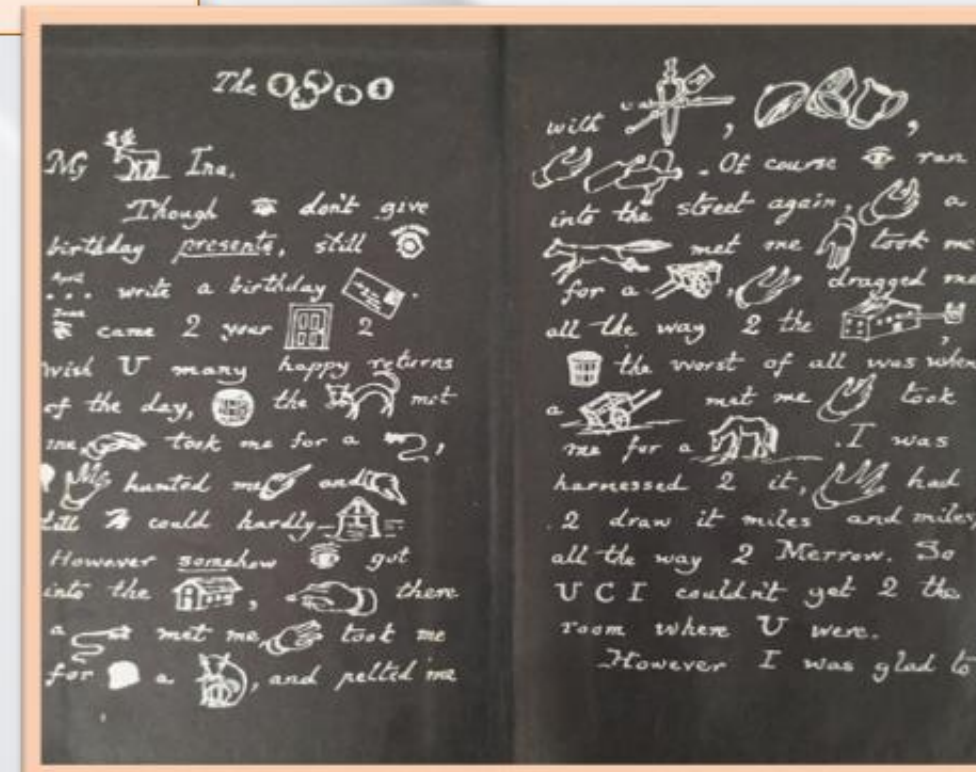 The
My Ina,
Though don't give
birthday presents, still
April
... write a birthday .
June
came 2 your 2
wish U many happy returns
of the day, the met
me, took me for a ,
hunted me and
till could hardly—
However somehow got
into the , there
a met me, took me
for a , and pelted me
with ,
. Of course ran
into the street again, a
met me took me
for a , dragged me
all the way 2 the ,
the worst of all was when
a met me took
me for a . I was
harnessed 2 it, had
2 draw it miles and miles
all the way 2 Merrow. So
U C I couldn't get 2 the
room where U were.
However I was glad to